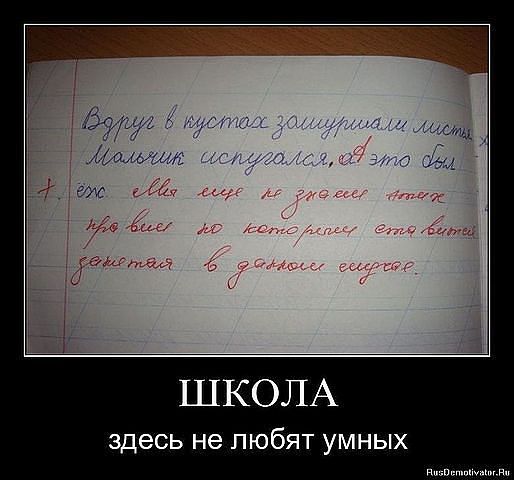 Вдруг в кустах зашуршали листья
Мальчик испугался, а А это был
ёж. Мы еще не знаем таких
правил по которым ставится
запятая в данном случае.
ШКОЛА
здесь не любят умных
RusDemotivator.Ru